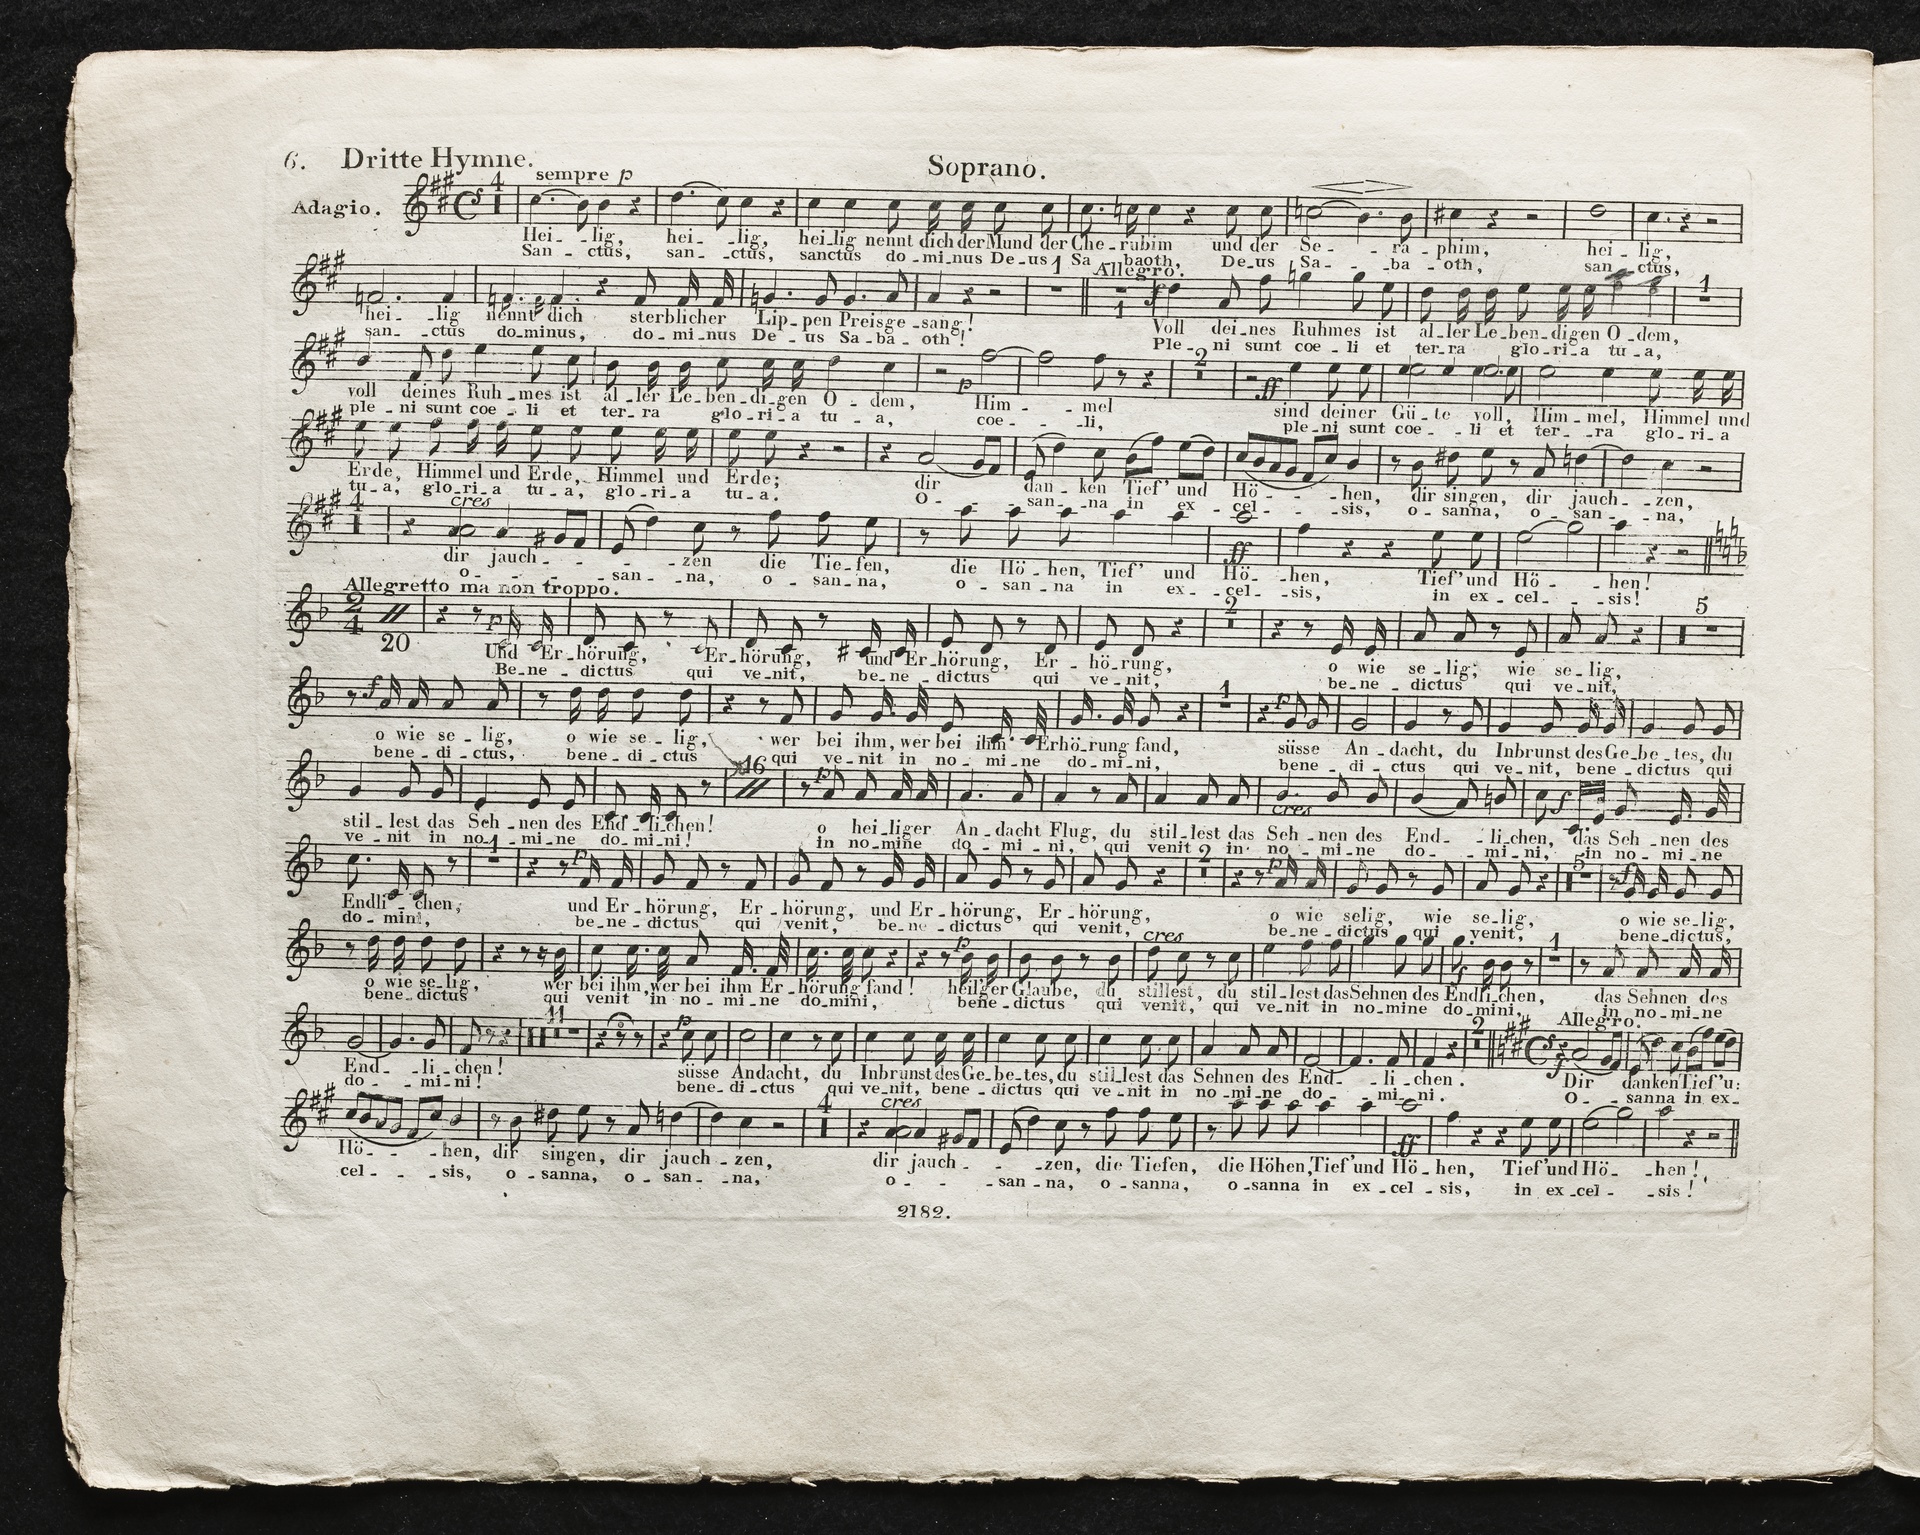 6. Dritte Hymne. Soprano.
sempre p
Adagio. 4
Hei - lig, hei - lig, heilig nennt dich der Mund der Che - rubim und der Se - ra - phim, hei - lig,
San - ctus, san - ctus, sanctus do - mi - nus De - us Sa - baoth, De - us Sa - ba - oth, san - ctus,
1 Allegro. f 1 1
hei - lig nennt dich sterblicher Lip - pen Preisge - sang! Voll dei - nes Ruhmes ist al - ler Le - ben - digen O - dem,
san - ctus do - minus, do - mi - nus De - us Sa - ba - oth! Ple - ni sunt coe - li et ter - ra glo - ri - a tu - a,
p 2 ff
voll deines Ruh - mes ist al - ler Le - ben - di - gen O - dem, Him - mel sind deiner Gü - te voll, Him - mel, Himmel und
ple - ni sunt coe - li et ter - ra glo - ri - a tu - a, coe - li, ple - ni sunt coe - li et ter - ra glo - ri - a
Erde, Himmel und Erde, Himmel und Erde; dir dan - ken Tief' und Hö - hen, dir singen, dir jauch - zen,
tu - a, glo - ri - a tu - a, glo - ri - a tu - a. O - san - na in ex - cel - sis, o - sanna, o - san - na,
4 cres ff
dir jauch - zen die Tie - fen, die Hö - hen, Tief' und Hö - hen, Tief' und Hö - hen!
o - san - na, o - san - na, o - san - na in ex - cel - sis, in ex - cel - sis!
Allegretto ma non troppo.
2 4 20 p 2 5
Und Er - hörung, Er - hörung, und Er - hörung, Er - hö - rung, o wie se - lig, wie se - lig,
Be - ne - dictus qui ve - nit, be - ne - dictus qui ve - nit, be - ne - dictus qui ve - nit,
f 1 p
o wie se - lig, o wie se - lig, wer bei ihm, wer bei ihm Erhö - rung fand, süsse An - dacht, du Inbrunst des Ge - be - tes, du
bene - di - ctus, bene - di - ctus qui ve - nit in no - mi - ne do - mi - ni, bene - di - ctus qui ve - nit, bene - dictus qui
16 p cres f
stil - lest das Seh - nen des End - li - chen! o hei - liger An - dacht Flug, du stil - lest das Seh - nen des End - li - chen, das Seh - nen des
ve - nit in no - mi - ne do - mi - ni! in no - mine do - mi - ni, qui venit in no - mi - ne do - mi - ni, in no - mi - ne
1 p 2 p 5 f
Endli - chen, und Er - hörung, Er - hörung, und Er - hörung, Er - hörung, o wie selig, wie se - lig, o wie se - lig,
do - mini, be - ne - dictus qui venit, be - ne - dictus qui venit, be - ne - dictus qui venit, bene - dictus,
p cres f 1
o wie se - lig, wer bei ihm, wer bei ihm Er - hörung fand! heil'ger Glaube, du stillest, du stil - lest das Sehnen des Endli - chen, das Sehnen des
bene - dictus qui venit in no - mi - ne do - mini, bene - dictus qui venit, qui ve - nit in no - mine do - mini, in no - mi - ne
11 p 2 Allegro. f
End - li - chen! süsse Andacht, du Inbrunst des Ge - be - tes, du stil - lest das Sehnen des End - li - chen. Dir danken Tief' u:
do - mi - ni! bene - di - ctus qui ve - nit, bene - dictus qui ve - nit in no - mi - ne do - mi - ni. O - sanna in ex -
4 cres ff
Hö - hen, dir singen, dir jauch - zen, dir jauch - zen, die Tiefen, die Höhen, Tief' und Hö - hen, Tief' und Hö - hen!
cel - sis, o - sanna, o - san - na, o - san - na, o - sanna, o - sanna in ex - cel - sis, in ex - cel - sis!
2182.